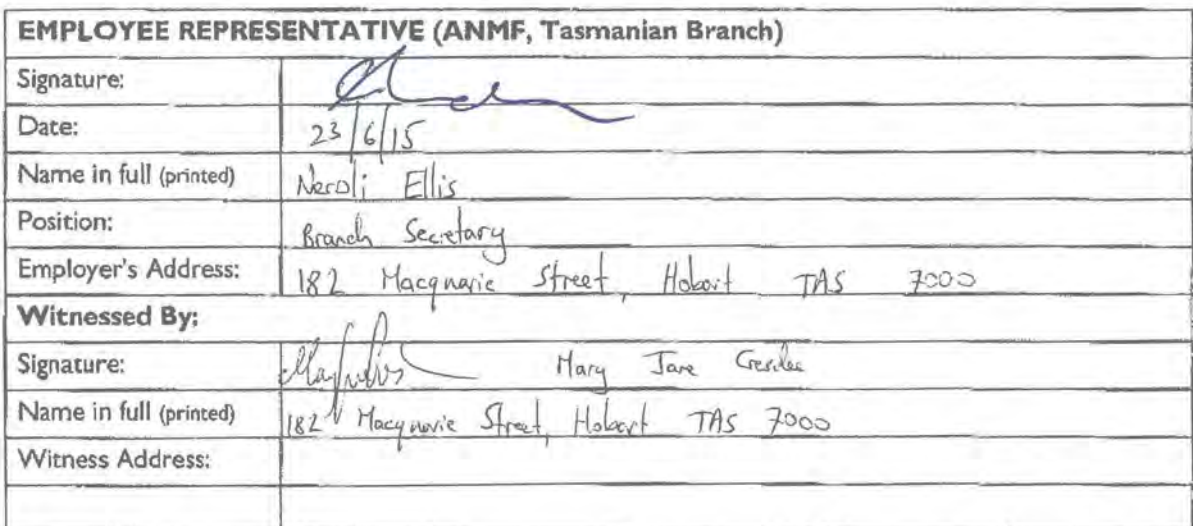 EMPLOYEE REPRESENTATIVE (ANMF, Tasmanian Branch)
Signature:
Date: 23/6/15
Name in full (printed) Neroli Ellis
Position: Branch Secretary
Employer's Address: 182 Macquarie Street, Hobart TAS 7000
Witnessed By:
Signature: Mary Jane
Name in full (printed) 182 Macquarie Street, Hobart TAS 7000
Witness Address: